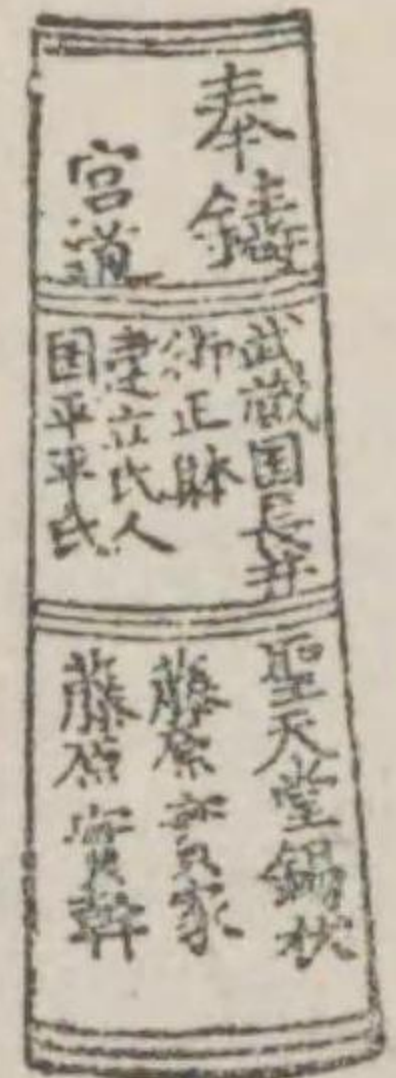 奉鑄
宮道
武蔵国長井
御正躰
建立氏人
国平平氏
聖天堂錫杖
藤原實家
藤原實幹